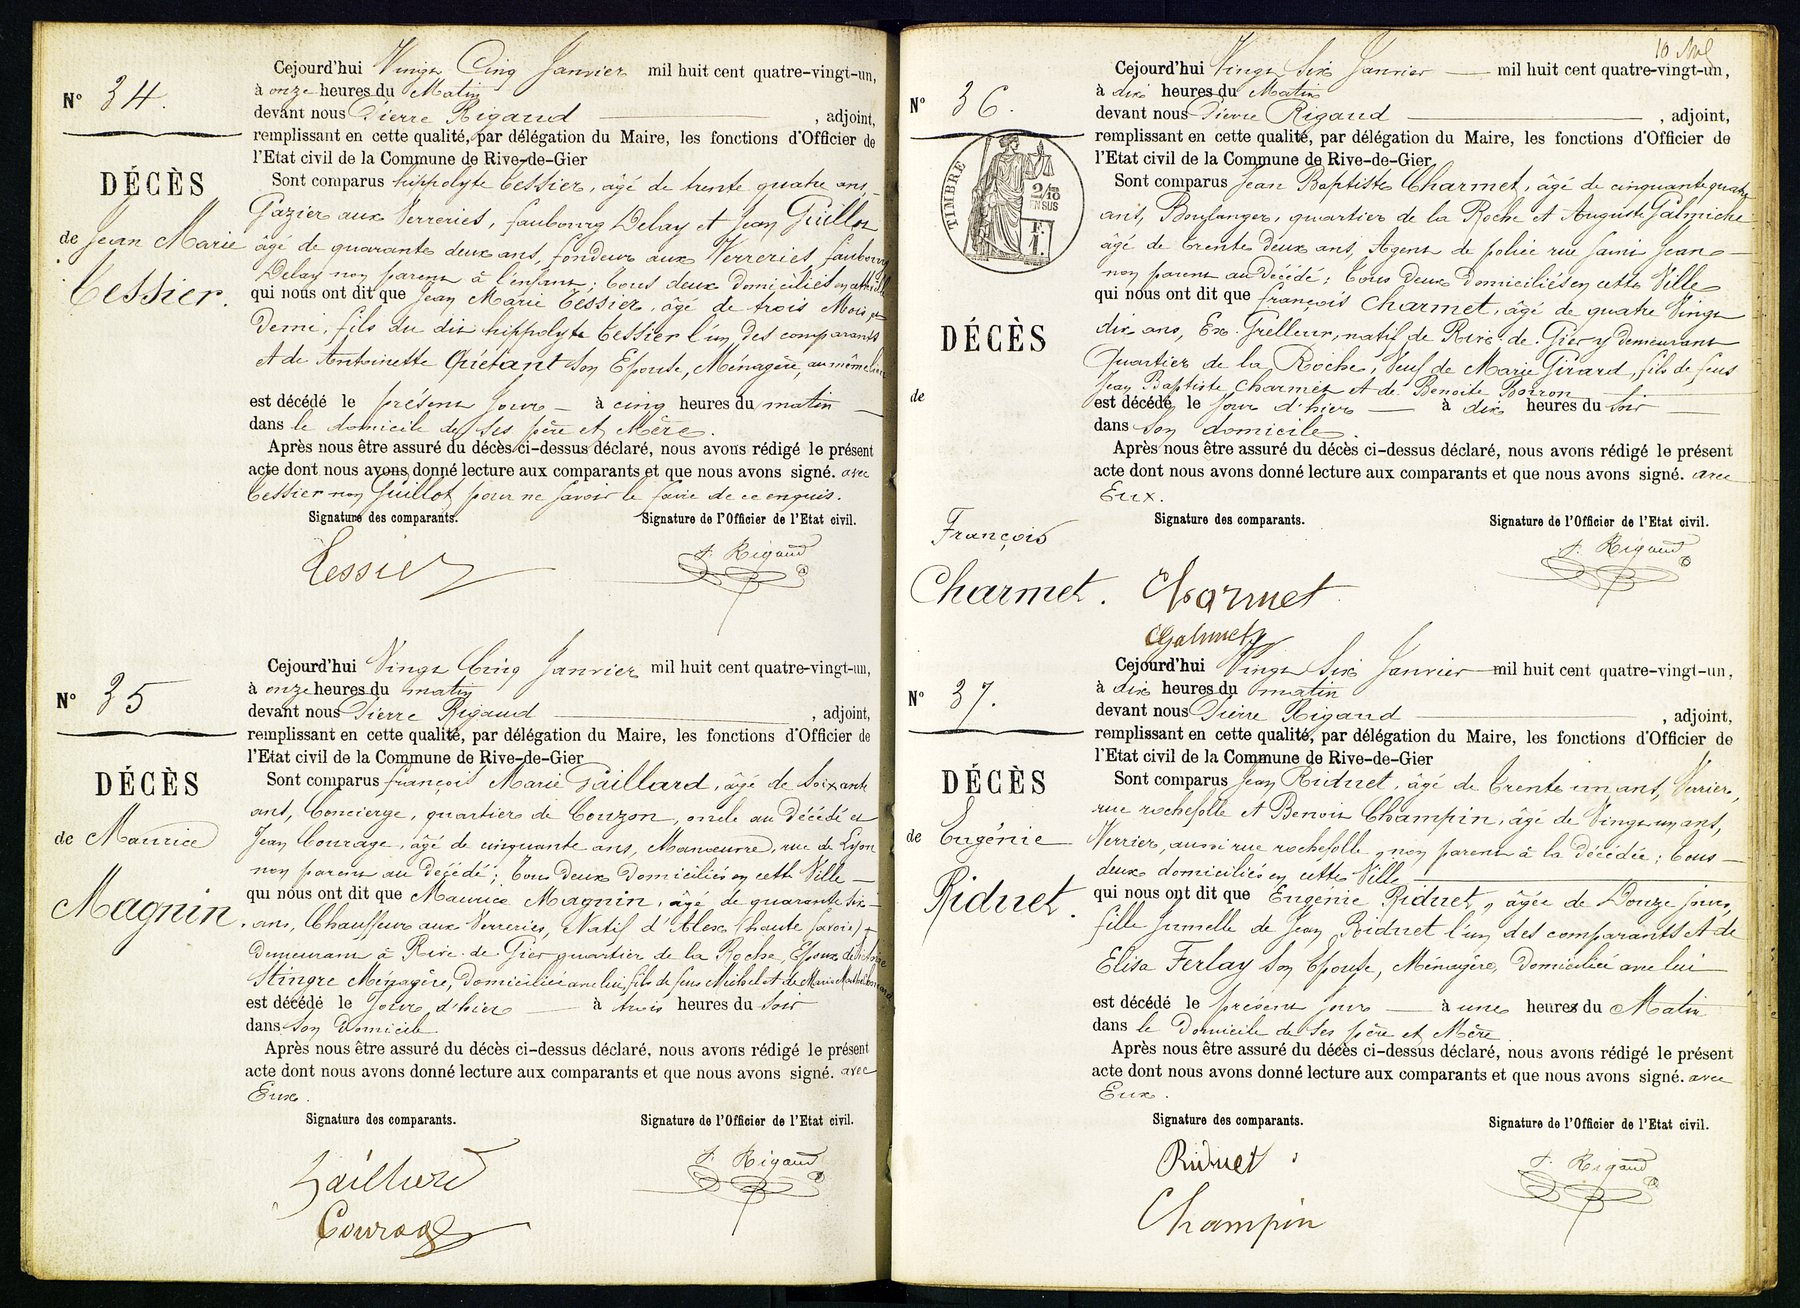 Cejourd'hui Vingt Cinq Janvier mil huit cent quatre-vingt-un,
N° 34.
à onze heures du Matin
devant nous Pierre Rigaud , adjoint,
remplissant en cette qualité, par délégation du Maire, les fonctions d'Officier de
l'Etat civil de la Commune de Rive-de-Gier
DÉCÈS
de Jean Marie
Tessier.
Sont comparus hippolyte Tessier, âgé de trente quatre ans,
Gazier aux Verreries, faubourg Delay et Jean Guillot
âgé de quarante deux ans, fondeur aux Verreries, faubourg
Delay non parent à l'enfant; tous deux domiciliés en cette ville
qui nous ont dit que Jean Marie Tessier, âgé de trois Mois et
Demi, fils du dit hippolyte Tessier l'un des comparants
et de Antoinette Quétant son Epouse, Ménagère, au même lieu
est décédé le présent jour à cinq heures du matin
dans le domicile de ses père et Mère.
Après nous être assuré du décès ci-dessus déclaré, nous avons rédigé le présent
acte dont nous avons donné lecture aux comparants et que nous avons signé. avec
Tessier non Guillot pour ne savoir le faire de ce enquis.
Signature des comparants. Signature de l'Officier de l'Etat civil.
Tessier P. Rigaud
Cejourd'hui Vingt Cinq Janvier mil huit cent quatre-vingt-un,
N° 35
à onze heures du matin
devant nous Pierre Rigaud , adjoint,
remplissant en cette qualité, par délégation du Maire, les fonctions d'Officier de
l'Etat civil de la Commune de Rive-de-Gier
DÉCÈS
de Maurice
Magnin.
Sont comparus françois Marie Gaillard, âgé de soixante
ans, Concierge, quartier de Couzon, oncle au Décédé et
Jean Courage, âgé de cinquante ans, Manoeuvre, rue de Lyon
non parent au décédé; tous deux domiciliés en cette Ville
qui nous ont dit que Maurice Magnin, âgé de quarante six
ans, Chauffeur aux Verreries, Natif d'Alex (haute Savoie)
Demeurant à Rive-de-Gier quartier de la Roche, Epoux de
Stingre Ménagère, Domiciliée avec lui, fils de feus Michel et de Marie
est décédé le jour d'hier à trois heures du soir
dans son Domicile
Après nous être assuré du décès ci-dessus déclaré, nous avons rédigé le présent
acte dont nous avons donné lecture aux comparants et que nous avons signé. avec
Eux.
Signature des comparants. Signature de l'Officier de l'Etat civil.
Gaillard P. Rigaud
Courage
10
Cejourd'hui Vingt Six Janvier mil huit cent quatre-vingt-un,
N° 36.
à dix heures du Matin
devant nous Pierre Rigaud , adjoint,
remplissant en cette qualité, par délégation du Maire, les fonctions d'Officier de
l'Etat civil de la Commune de Rive-de-Gier
TIMBRE
2/10
EN SUS
F.
1.
DÉCÈS
de
François
Charmet.
Sont comparus Jean Baptiste Charmet, âgé de cinquante quatre
ans, Boulanger, quartier de la Roche et Auguste Galmiche
âgé de trente deux ans, Agent de police rue saint Jean
non parent au décédé; tous deux domiciliés en cette Ville
qui nous ont dit que françois Charmet, âgé de quatre Vingt
dix ans, Ex. Grelleur, natif de Rive-de-Gier y demeurant
Quartier de la Roche, Veuf de Marie Girard, fils de feus
Jean Baptiste Charmet et de Benoite Boiron
est décédé le Jour d'hier à dix heures du soir
dans son domicile.
Après nous être assuré du décès ci-dessus déclaré, nous avons rédigé le présent
acte dont nous avons donné lecture aux comparants et que nous avons signé. avec
Eux.
Signature des comparants. Signature de l'Officier de l'Etat civil.
Charmet P. Rigaud
Cejourd'hui Vingt Six Janvier mil huit cent quatre-vingt-un,
N° 37.
à dix heures du matin
devant nous Pierre Rigaud , adjoint,
remplissant en cette qualité, par délégation du Maire, les fonctions d'Officier de
l'Etat civil de la Commune de Rive-de-Gier
DÉCÈS
de Eugénie
Riduet.
Sont comparus Jean Riduet, âgé de trente un ans, Verrier,
rue rochefolle et Benoit Champin, âgé de Vingt un ans,
Verrier, aussi rue rochefolle, non parent à la décédée; tous
deux domiciliés en cette Ville
qui nous ont dit que Eugénie Riduet, âgée de Douze jours,
fille jumelle de Jean Riduet l'un des comparants et de
Elisa Ferlay son Epouse, Ménagère, Domiciliée avec lui
est décédé le présent jour à une heures du Matin
dans le Domicile de ses père et Mère
Après nous être assuré du décès ci-dessus déclaré, nous avons rédigé le présent
acte dont nous avons donné lecture aux comparants et que nous avons signé. avec
Eux.
Signature des comparants. Signature de l'Officier de l'Etat civil.
Riduet P. Rigaud
Champin